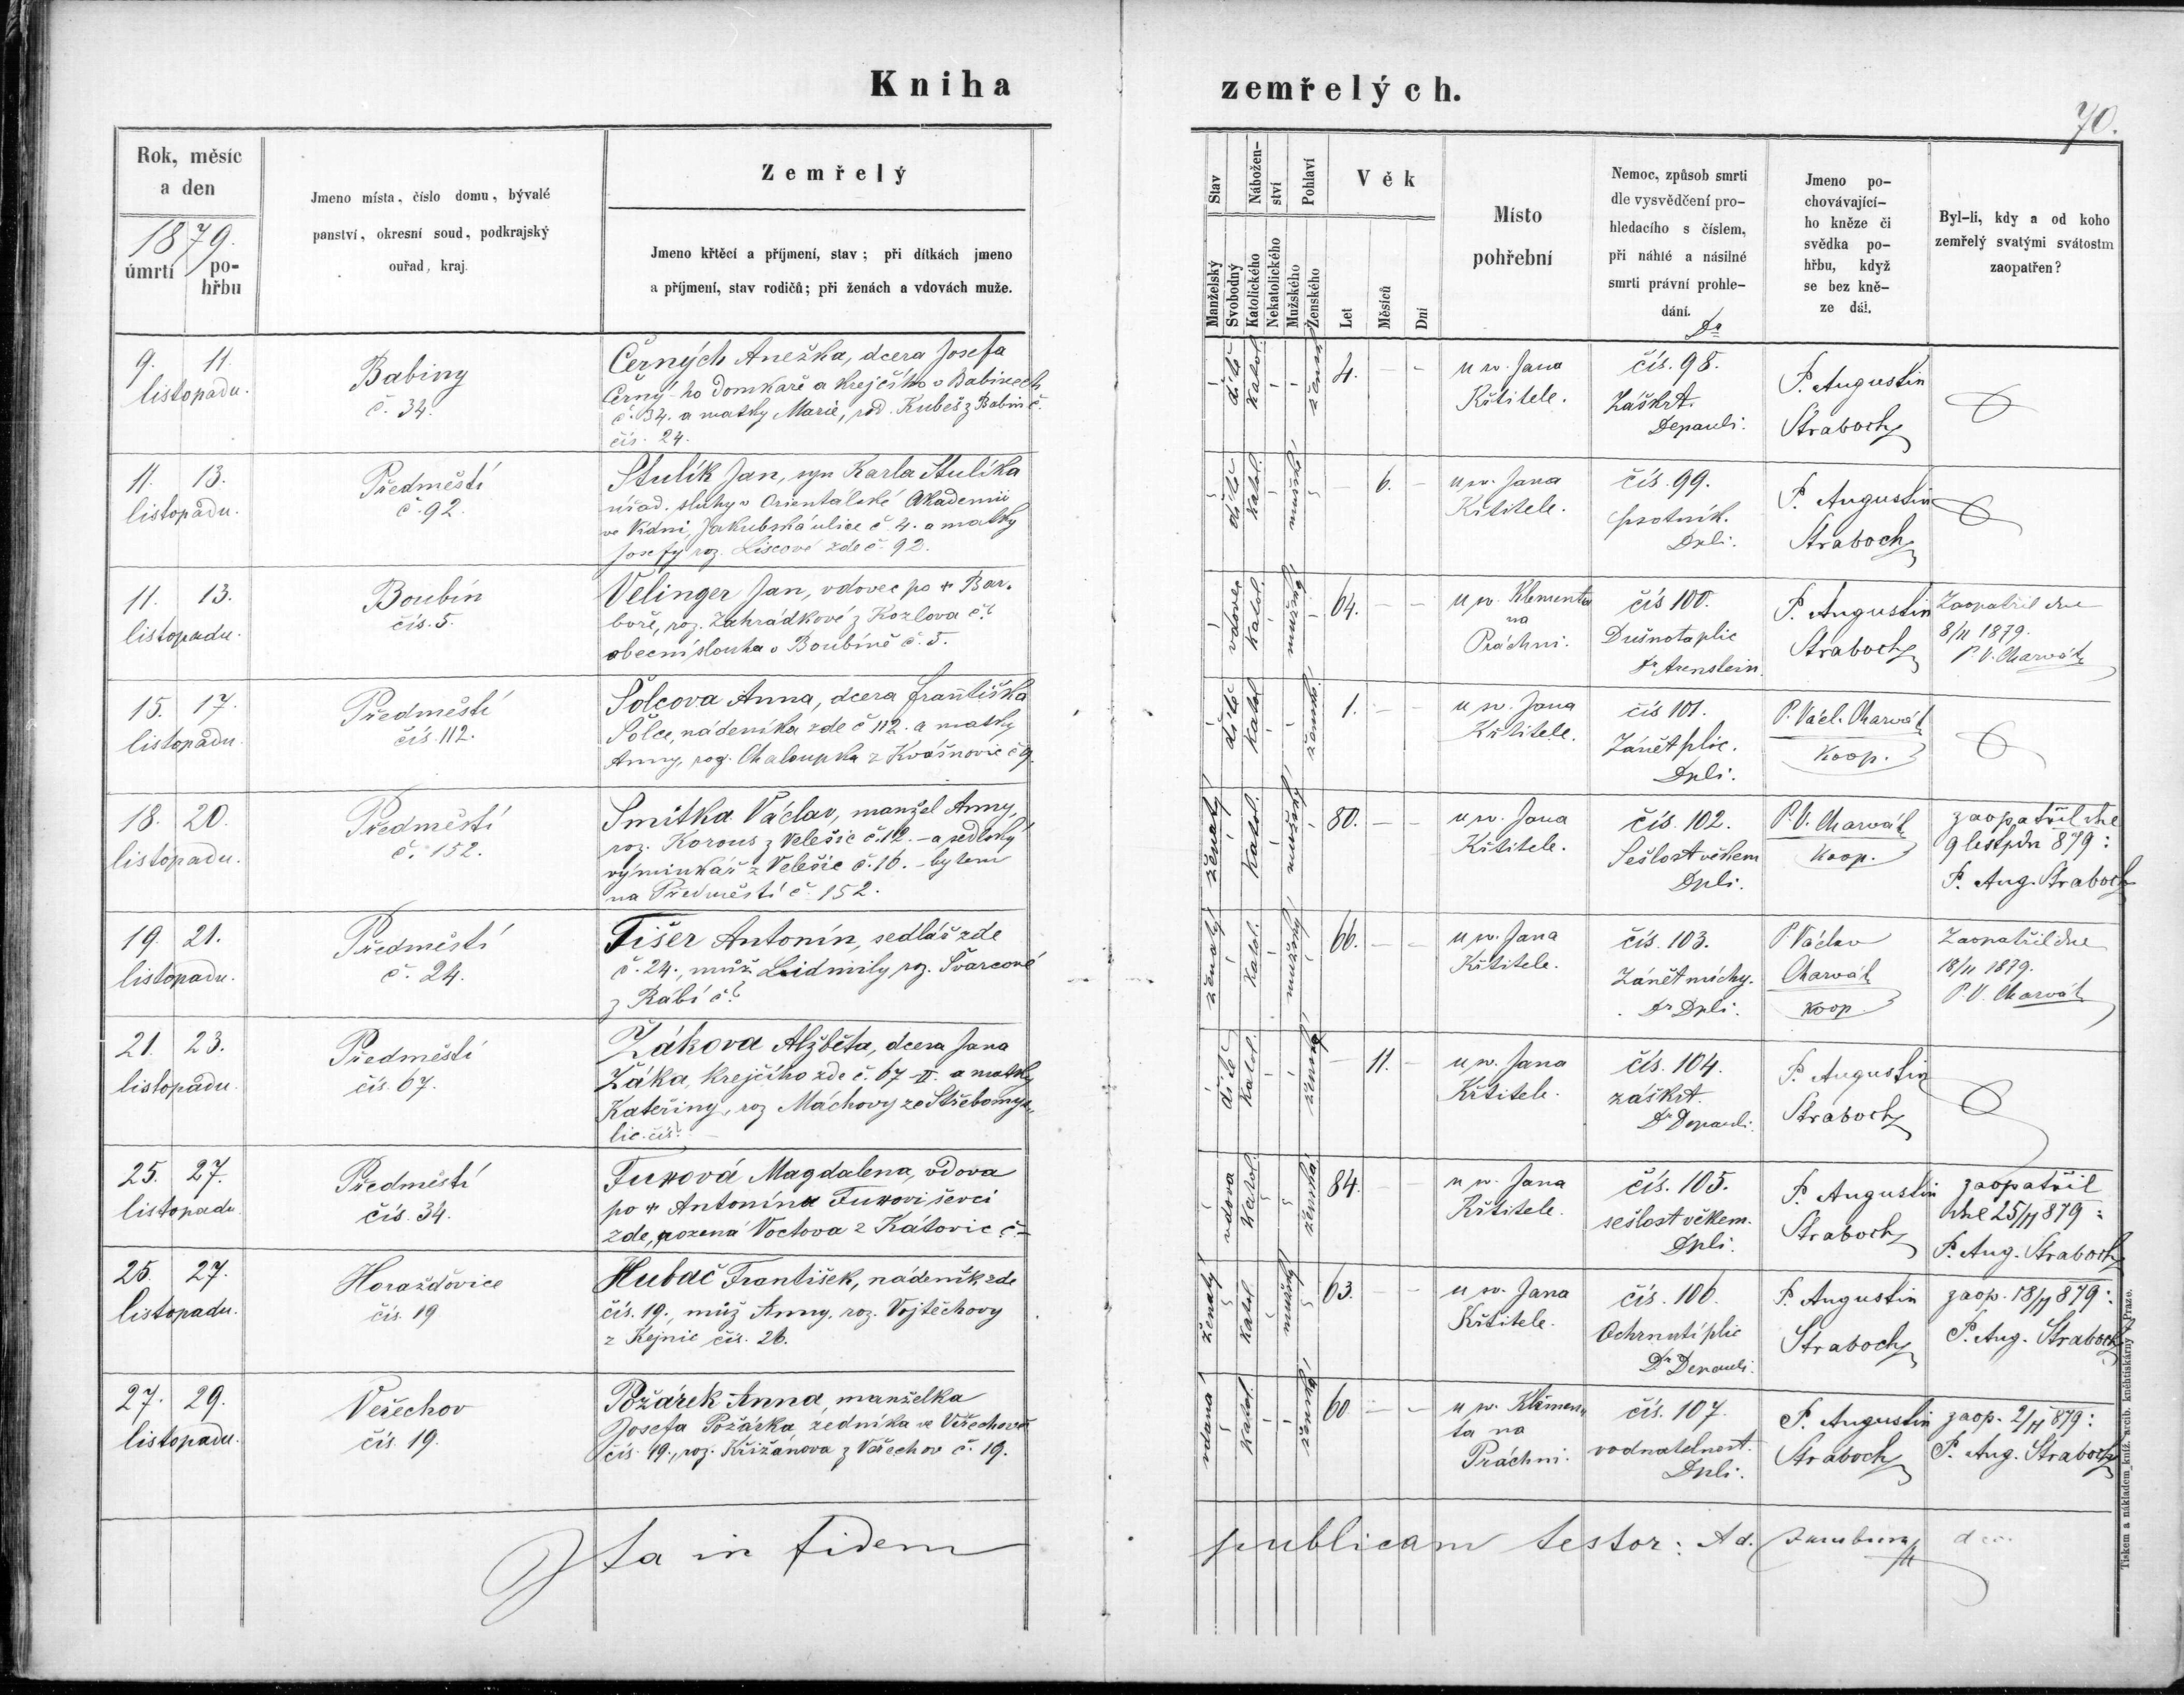 Kniha zemřelých.
70.
Rok, měsíc
a den
1879.
úmrtí
po-
hřbu
Jmeno místa, číslo domu, bývalé
panství, okresní soud, podkrajský
ouřad, kraj.
Zemřelý
Jmeno křtěcí a příjmení, stav; při dítkách jmeno
a příjmení, stav rodičů; při ženách a vdovách muže.
Stav
Manželský
Svobodný
Nábožen-
ství
Katolického
Nekatolického
Pohlaví
Mužského
Ženského
Věk
Let
Měsíců
Dní
Místo
pohřební
Nemoc, způsob smrti
dle vysvědčení pro-
hledacího s číslem,
při náhlé a násilné
smrti právní prohle-
dání.
Jmeno po-
chovávající-
ho kněze či
svědka po-
hřbu, když
se bez kně-
ze dál.
Byl-li, kdy a od koho
zemřelý svatými svátostm
zaopatřen?
9. 11.
listopadu.
Babiny
č. 34.
Černých Anežka, dcera Josefa
Černý-ho domkaře a krejčího v Babinech
č. 34. a matky Marie, rod. Kubeš z Babin č.
čís. 24.
dítě
katol.
žensk.
4. - -
u sv. Jana
Křtitele.
Dr
čís. 98.
Záškrt.
Depauli.
P. Augustin
Straboch
11. 13.
listopadu.
Předměstí
č. 92.
Stulík Jan, syn Karla Stulíka
úřad. sluhy v Orientalské Akademii
ve Vídni, Jakubská ulice č. 4. a matky
Josefy roz. Liscové zde č. 92.
dítě
katol.
mužské
- 6. -
u sv. Jana
Křtitele.
čís. 99.
psotník.
Dpli.
P. Augustin
Straboch
11. 13.
listopadu.
Boubín
čís. 5.
Velinger Jan, vdovec po † Bar-
boře, roz. Zahrádkové z Kozlova č.?
obecní slouha v Boubíně č. 5.
vdovec
katol.
mužské
64. - -
u sv. Klementa
na
Práchni.
čís 100.
Dušnota plic
Dr. Arnstein.
P. Augustin
Straboch
Zaopatřil dne
8/11 1879.
P. V. Charvát
15. 17.
listopadu.
Předměstí
čís. 112.
Šolcova Anna, dcera Františka
Šolce, nádeníka zde č 112. a matky
Anny, roz. Chaloupka z Kvášnovic č 9.
dítě
katol
ženské
1. - -
u sv. Jana
Křtitele.
čís 101.
Zánět plic.
Dpli.
P. Václ. Charvát
koop.
18. 20.
listopadu.
Předměstí
č. 152.
Smitka Václav, manžel Anny,
roz. Korous z Velešic č. 12. - a sedlský
výminkář z Velešic č. 16. - bytem
na Předměstí č. 152.
ženatý
katol.
mužský
80. - -
u sv. Jana
Křtitele.
čís. 102.
Sešlost věkem
Dpli.
P. V. Charvát
koop.
zaopatřil dne
9 listpdu 879:
P. Aug. Straboch
19. 21.
listopadu.
Předměstí
č. 24.
Tišer Antonín, sedlář zde
č. 24., můž Lidmily, roz. Švarcové
z Rábí č.?
ženatý
katol.
mužský
66. - -
u sv. Jana
Křtitele.
čís. 103.
Zánět míchy.
Dr Dpli.
P. Václav
Charvát
koop.
Zaopatřil dne
18/11 1879.
P. V. Charvát
21. 23.
listopadu.
Předměstí
čís. 67.
Žákova Alžběta, dcera Jana
Žáka, krejčího zde č. 67-II. a matky
Kateřiny, roz Máchovy ze Střebomys-
lic čís?
dítě
katol.
ženské
- 11. -
u sv. Jana
Křtitele.
čís. 104.
záškrt.
Dr Depauli.
P. Augustin
Straboch
25. 27.
listopadu.
Předměstí
čís. 34.
Magdalena, vdova
po † Antonína ševci
zde, rozená Voctova z Kátovic č. -
vdova
katol.
ženská
84. - -
u sv. Jana
Křtitele.
čís. 105.
sešlost věkem.
Dpli.
P. Augustin
Straboch
zaopatřil
dne 25/11 879:
P. Aug. Straboch
25. 27.
listopadu.
Horažďovice
čís. 19
Hubač František, nádeník zde
čís. 19., můž Anny, roz. Vojtěchovy
z Kejnic čís. 26.
ženatý
katol.
mužský
63. - -
u sv. Jana
Křtitele.
čís. 106.
Ochrnutí plic
Dr Depauli.
P. Augustin
Straboch
zaop. 18/11 879:
P. Aug. Straboch
27. 29.
listopadu.
Veřechov
čís. 19.
Požárek Anna, manželka
Josefa Požárka, zedníka ve Veřechově
čís. 19., roz. Křižánova z Veřechov č. 19.
vdana
katol.
ženské
60 - -
u sv. Klémen-
ta na
Práchni.
čís. 107.
vodnatelnost.
Dpli.
P. Augustin
Straboch
zaop. 2/11 879:
P. Aug. Straboch
Ita in fidem publicam testor: Ad.
Tiskem a nákladem kníž. arcib. knihtiskárny v Praze.